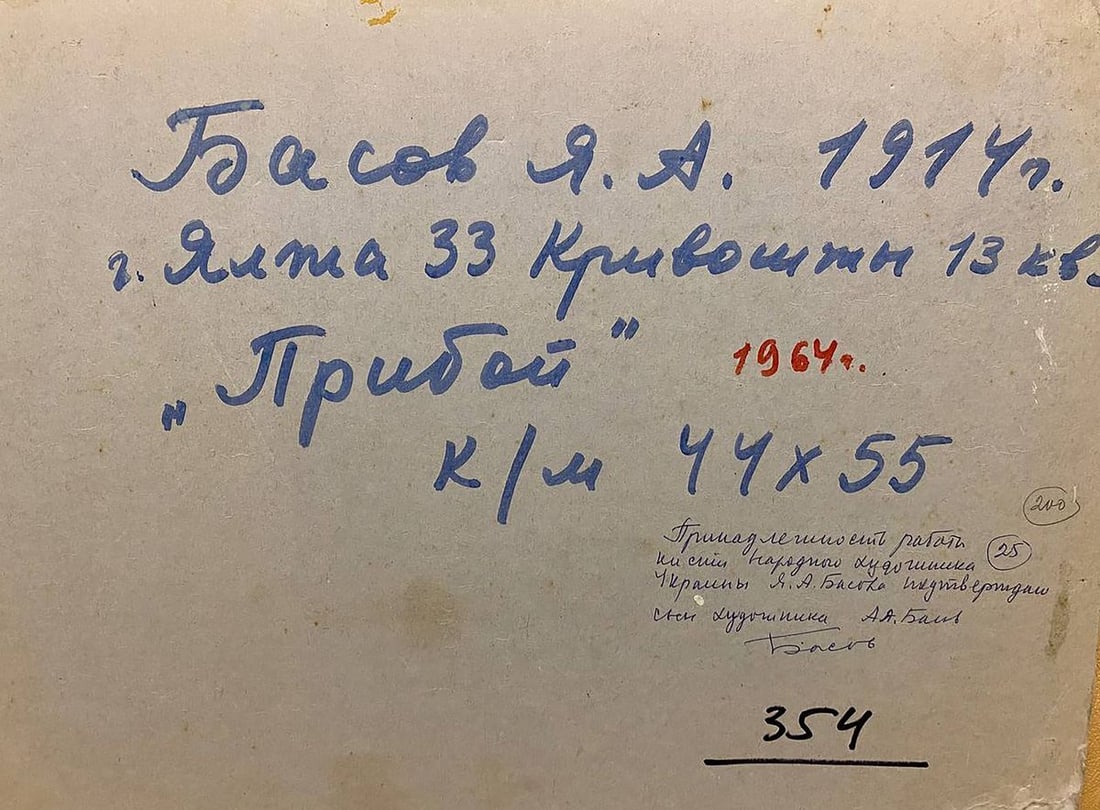 Басов Я. А. 1914г.
г. Ялта 33 Кривошты 13 кв.
„Прибой” 1964г.
к/м 44х55
200
Принадлежность работы 25
кисти Народного художника
Украины Я. А. Басова подтверждаю
сын художника А Я. Басов
Басов
354